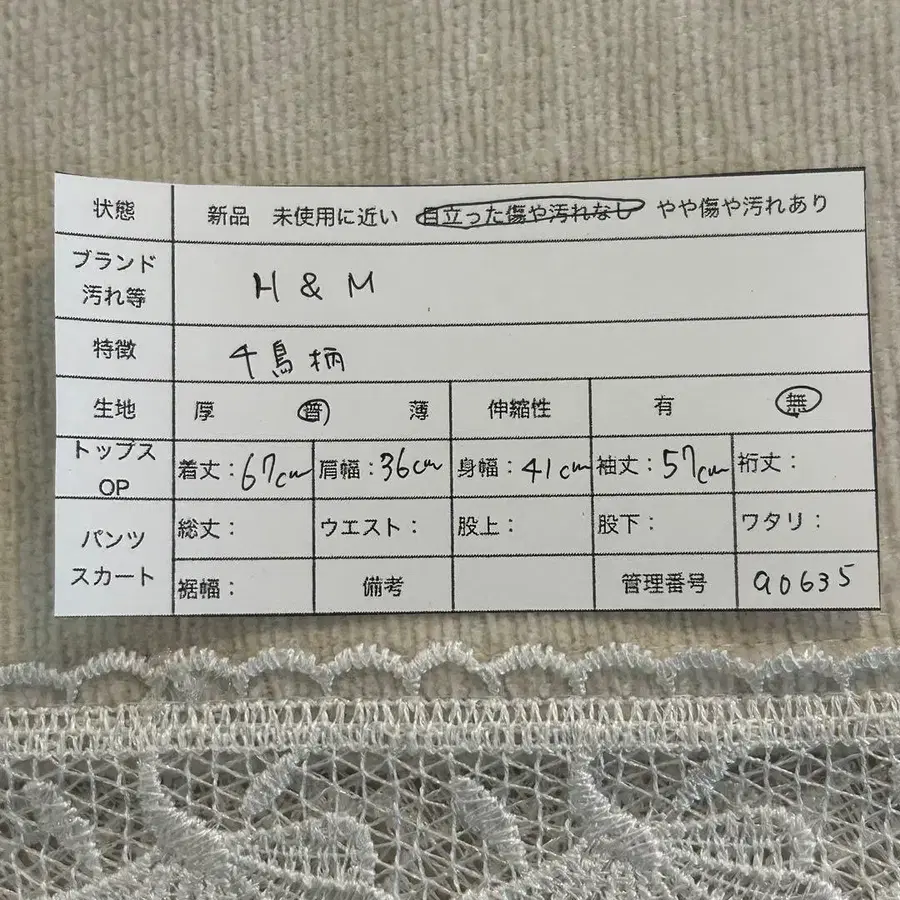 状態 新品 未使用に近い 目立った傷や汚れなし やや傷や汚れあり
ブランド
汚れ等
H & M
特徴 千鳥柄
生地 厚 普 薄 伸縮性 有 無
トップス
OP
着丈:67cm 肩幅:36cm 身幅:41cm 袖丈:57cm 裄丈:
パンツ
スカート
総丈: ウエスト: 股上: 股下: ワタリ:
裾幅: 備考 管理番号 a0635